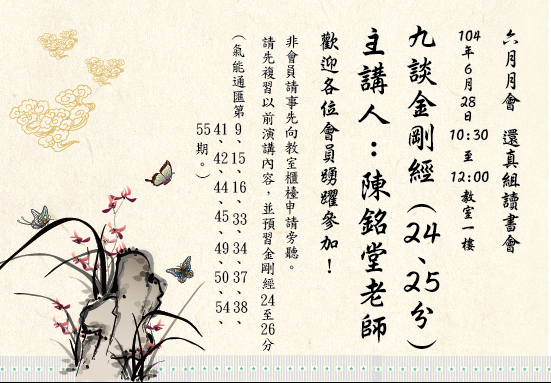 六月月會 還真組讀書會
104年6月28日 10:30 至 12:00 教室一樓
九談金剛經（24、25分）
主講人：陳銘堂老師
歡迎各位會員踴躍參加！
非會員請事先向教室櫃檯申請旁聽。
請先複習以前演講內容，並預習金剛經24至26分
（氣能通匯第 9、15、16、33、34、37、38、
41、42、44、45、49、50、54、
55期。）